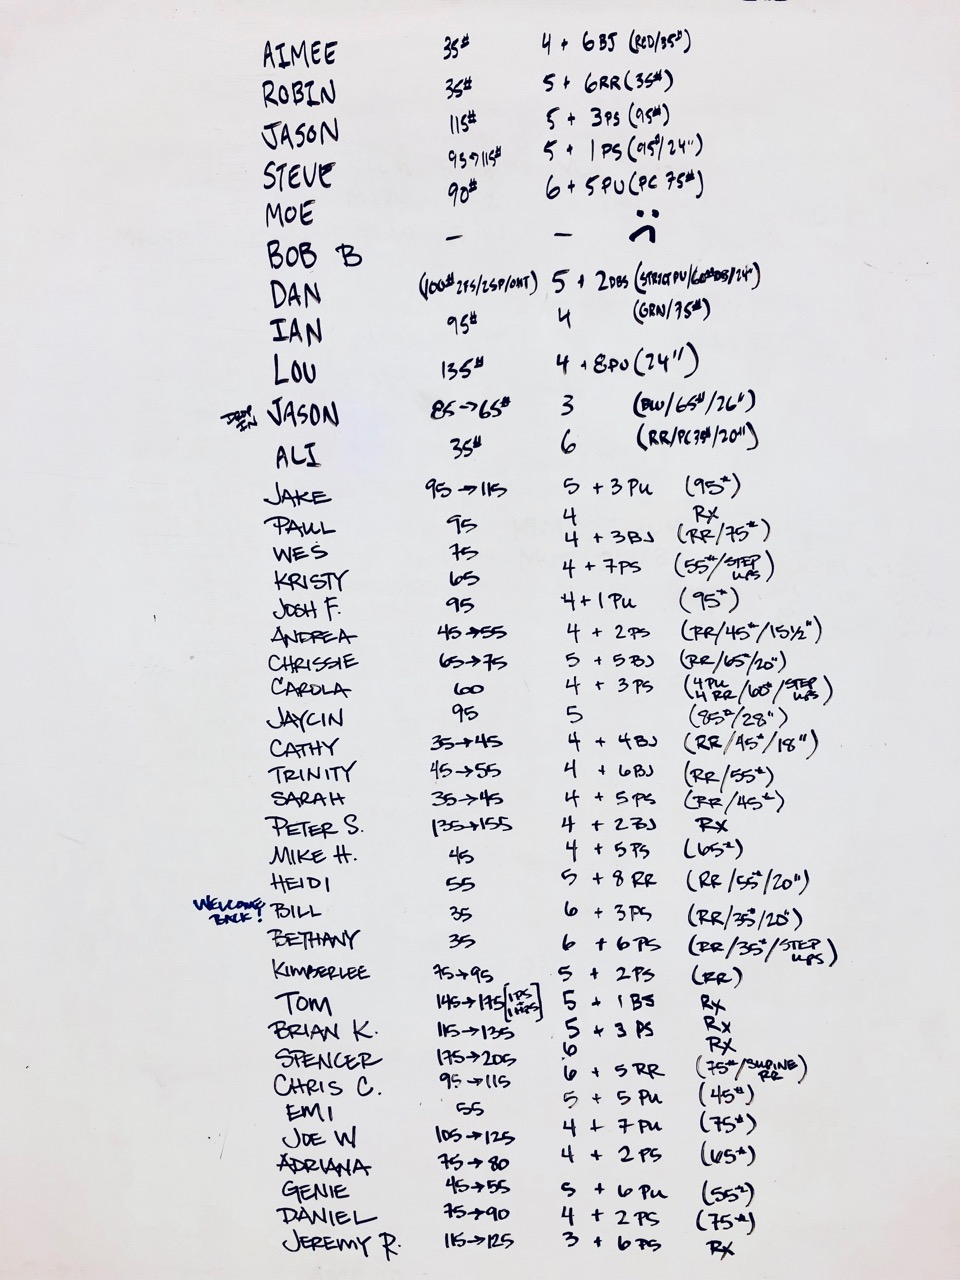 AIMEE 35# 4 + 6BJ (RED/35#)
ROBIN 35# 5 + 6RR (35#)
JASON 115# 5 + 3PS (95#)
STEVE 95→115# 5 + 1PS (95#/24")
MOE 90# 6 + 5PU (PC 75#)
BOB B — — :(
DAN (100# 2FS/2SP/OHT) 5 + 2DBS (STRICT PU/60#DB/24")
IAN 95# 4 (GRN/75#)
LOU 135# 4 + 8PU (24")
DROP IN JASON 85→65# 3 (BLU/65#/26")
ALI 35# 6 (RR/PC35#/20")
JAKE 95→115 5 + 3PU (95#)
PAUL 95 4 RX
WES 75 4 + 3BJ (RR/75#)
KRISTY 65 4 + 7PS (55#/STEP UPS)
JOSH F. 95 4 + 1PU (95#)
ANDREA 45→55 4 + 2PS (RR/45#/15½")
CHRISSIE 65→75 5 + 5BJ (RR/65#/20")
CAROLA 60 4 + 3PS (4PU 4RR/60#/STEP UPS)
JAYCIN 95 5 (85#/28")
CATHY 35→45 4 + 4BJ (RR/45#/18")
TRINITY 45→55 4 + 6BJ (RR/55#)
SARAH 35→45 4 + 5PS (RR/45#)
PETER S. 135→155 4 + 2BJ RX
MIKE H. 45 4 + 5PS (65#)
HEIDI 55 5 + 8RR (RR/55#/20")
WELCOME BACK! BILL 35 6 + 3PS (RR/35#/20")
BETHANY 35 6 + 6PS (RR/35#/STEP UPS)
KIMBERLEE 75→95 5 + 2PS (RR)
TOM 145→175 [1PS + 1HPS] 5 + 1BJ RX
BRIAN K. 115→135 5 + 3PS RX
SPENCER 175→205 6 RX
CHRIS C. 95→115 6 + 5RR (75#/SUPINE RR)
EMI 55 5 + 5PU (45#)
JOE W 105→125 4 + 7PU (75#)
ADRIANA 75→80 4 + 2PS (65#)
GENIE 45→55 5 + 6PU (55#)
DANIEL 75→90 4 + 2PS (75#)
JEREMY R. 115→125 3 + 6PS RX